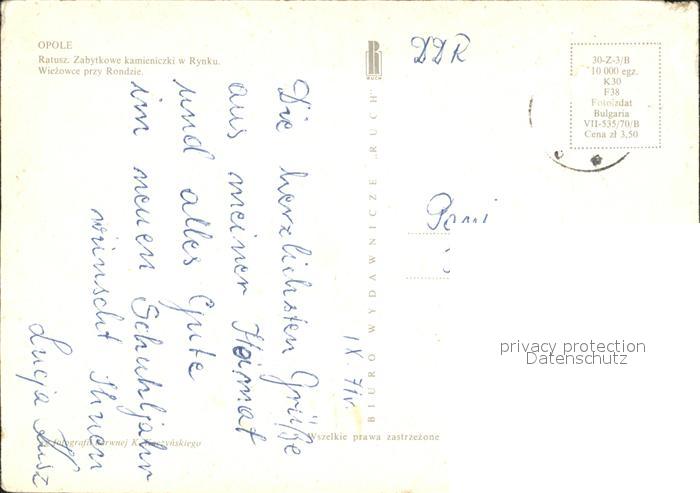 OPOLE
Ratusz. Zabytkowe kamieniczki w Rynku.
Wieżowce przy Rondzie.
RUCH
DDR
30-Z-3/B
10 000 egz.
K30
F38
Fotoizdat
Bulgaria
VII-535/70/B
Cena zł 3,50
BIURO WYDAWNICZE „RUCH"
IX. 71r.
Die herzlichsten Grüße
aus meiner Heimat
und alles Gute
im neuen Schuhljahr
wünscht Ihnen
Lucja
fotografii barwnej K.
Wszelkie prawa zastrzeżone
privacy protection
Datenschutz